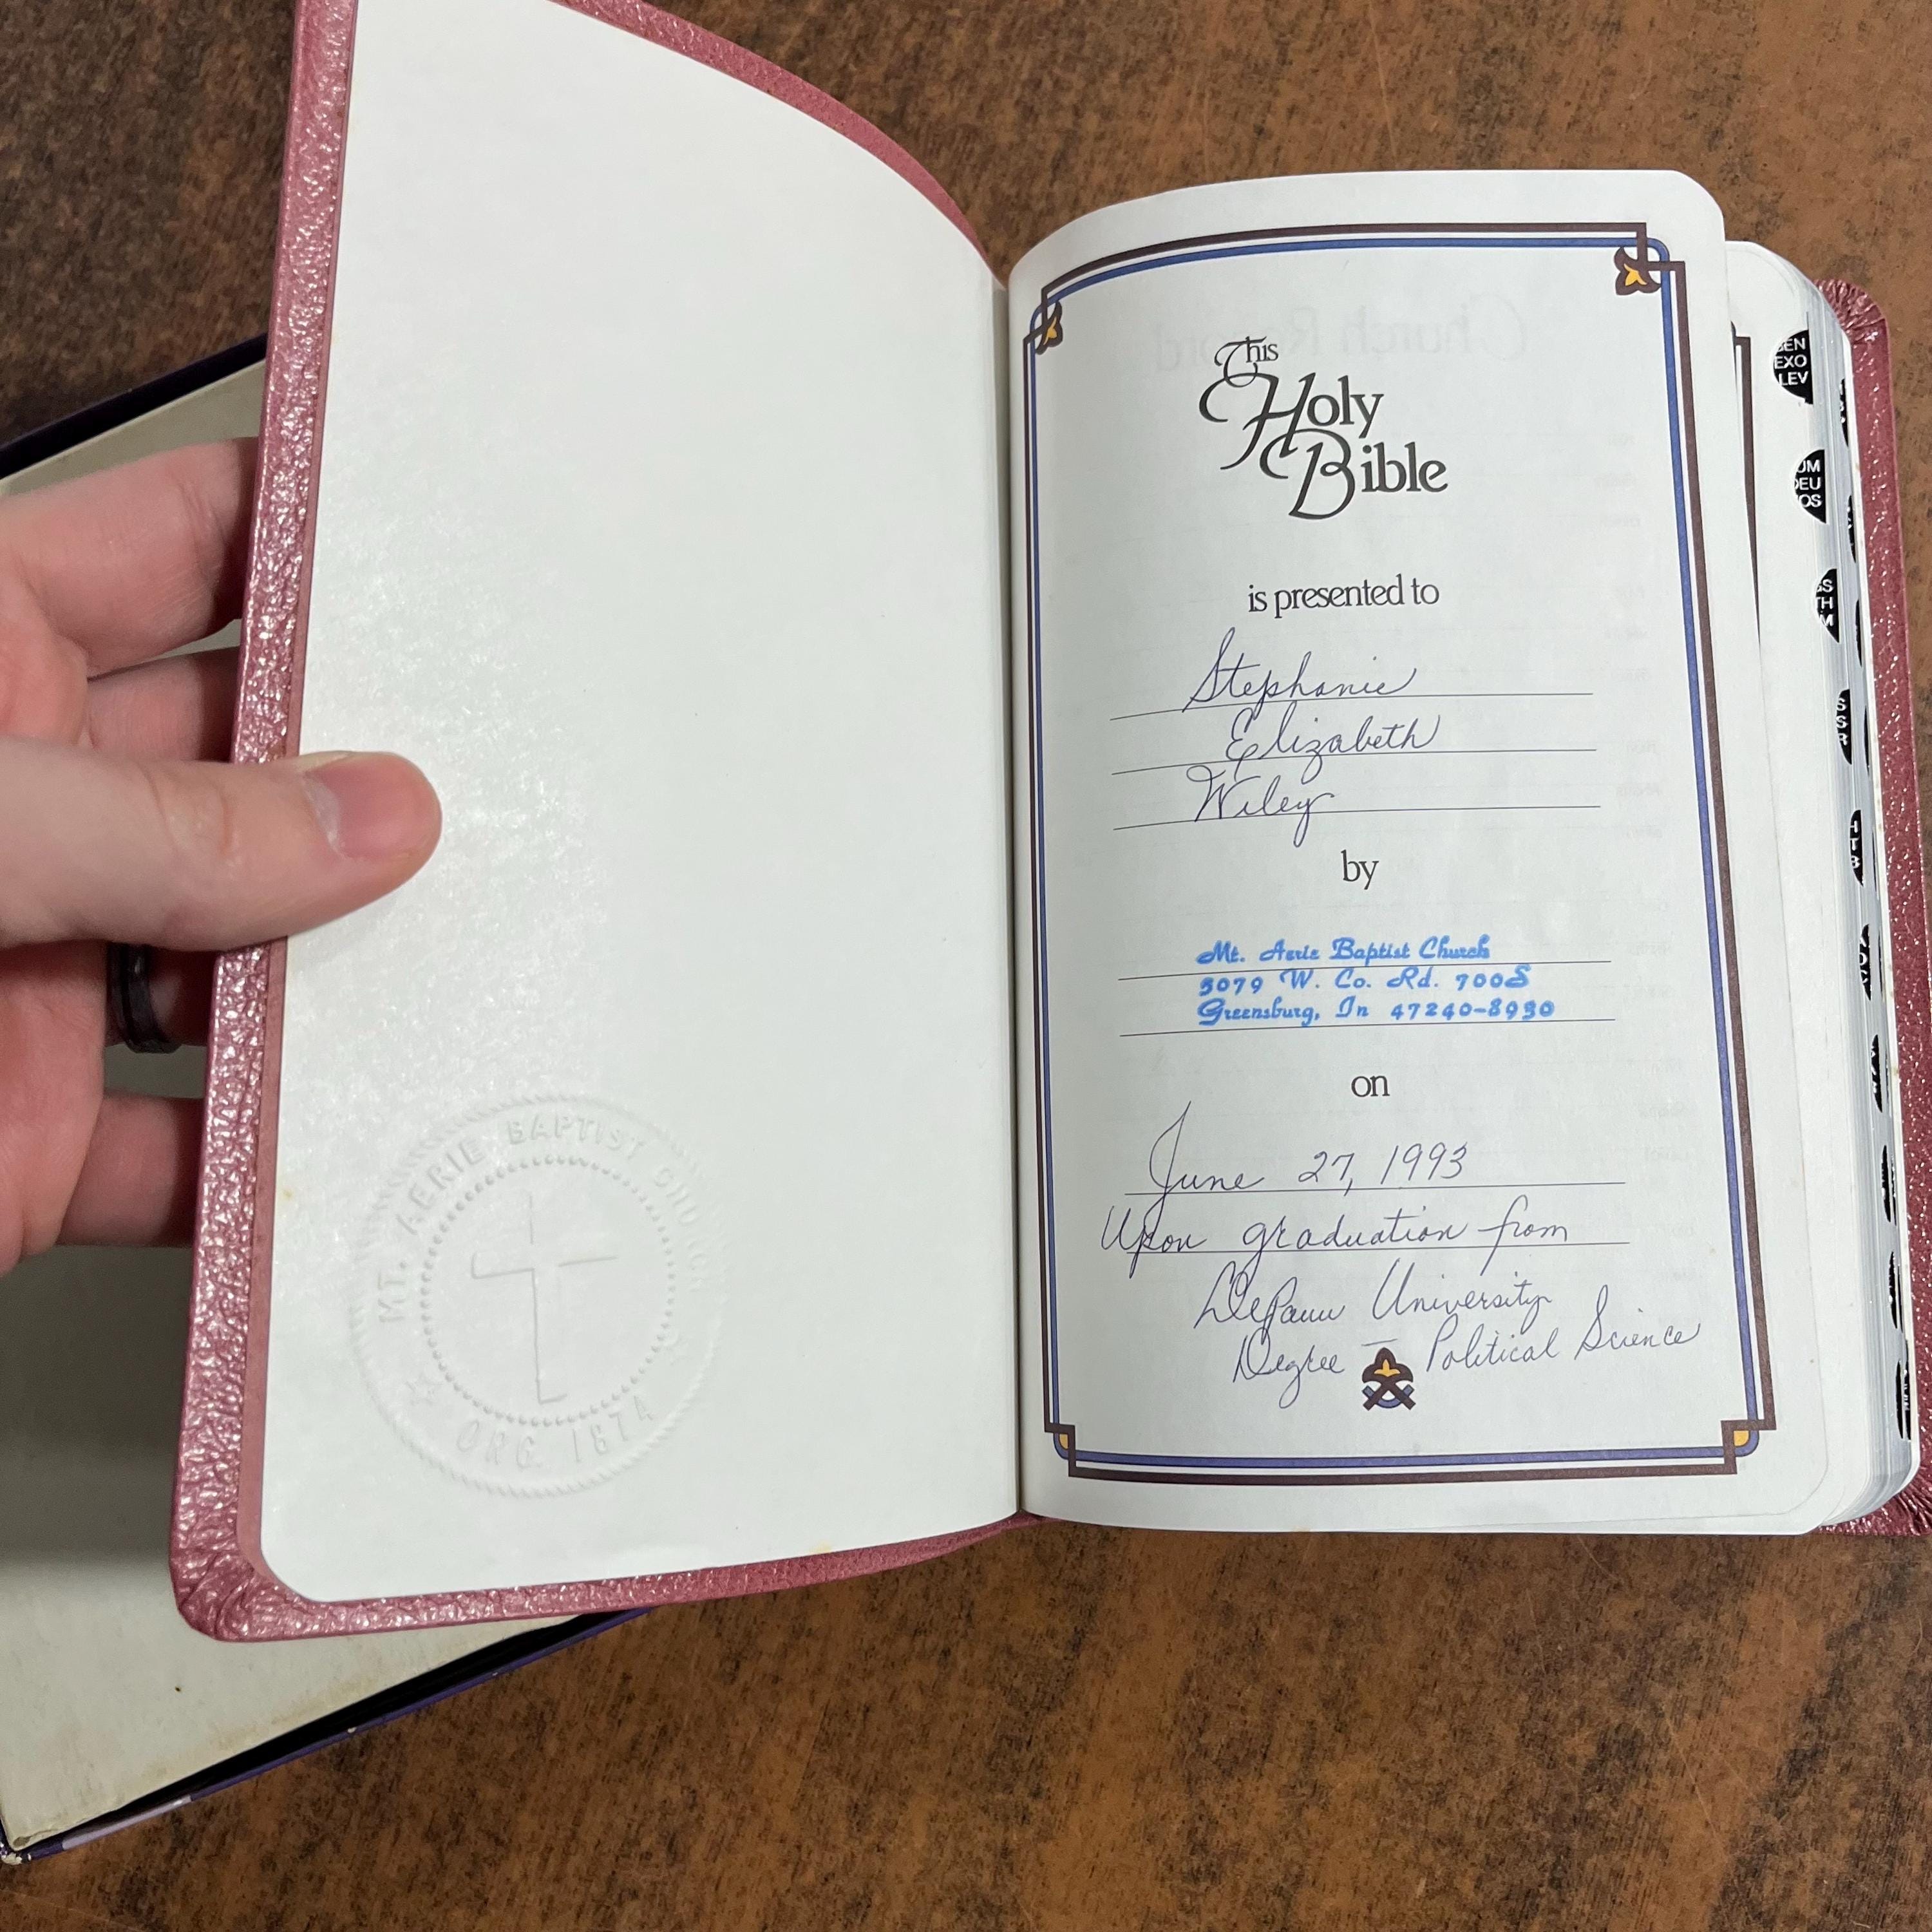 MT. AERIE BAPTIST CHURCH
ORG. 1874
This
Holy
Bible
is presented to
Stephanie
Elizabeth
Wiley
by
Mt. Aerie Baptist Church
5079 W. Co. Rd. 700S
Greensburg, In 47240-8930
on
June 27, 1993
Upon graduation from
DePauw University
Degree – Political Science
Church Record
GEN
EXO
LEV
DEU